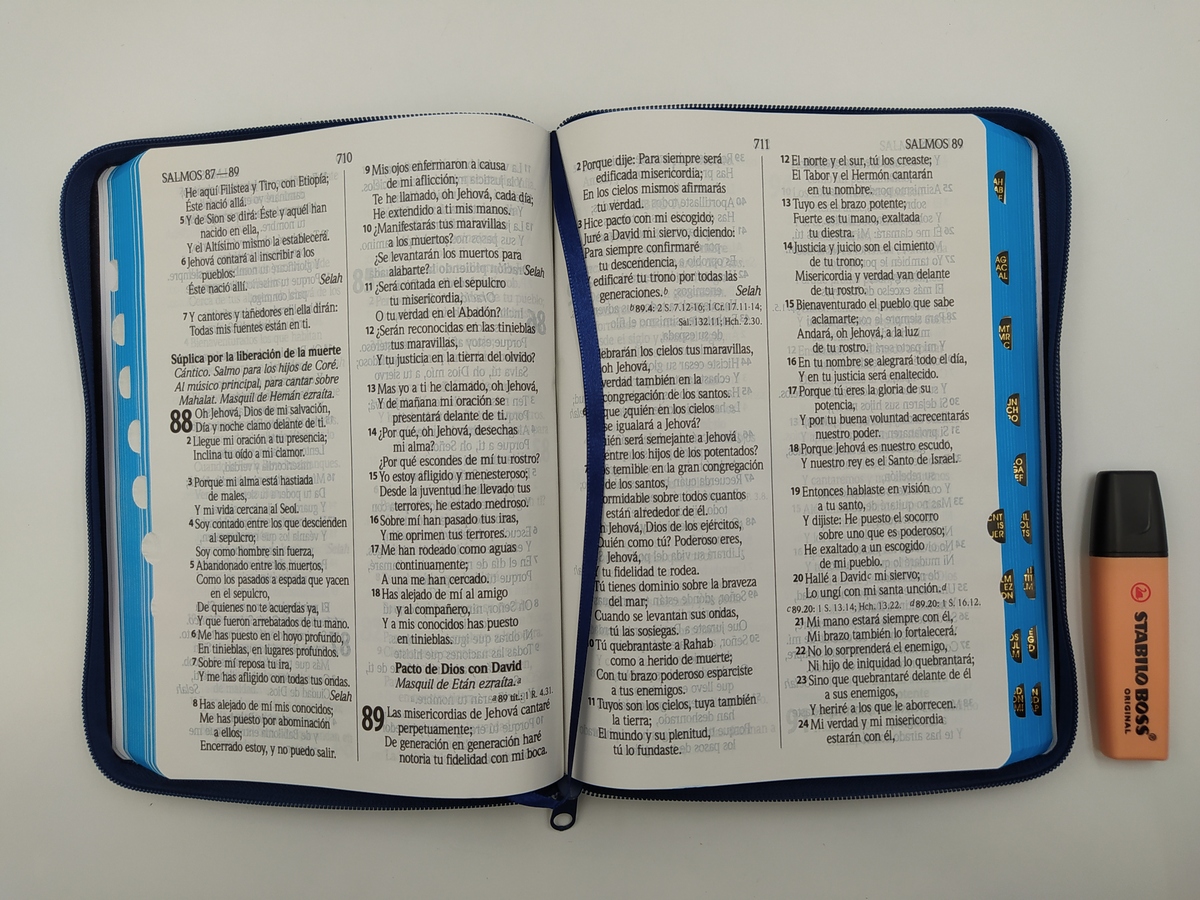 SALMOS 87—89
710
He aquí Filistea y Tiro, con Etiopía;
Éste nació allá.
5 Y de Sion se dirá: Éste y aquél han
nacido en ella,
Y el Altísimo mismo la establecerá.
6 Jehová contará al inscribir a los
pueblos:
Éste nació allí. Selah
7 Y cantores y tañedores en ella dirán:
Todas mis fuentes están en ti.
Súplica por la liberación de la muerte
Cántico. Salmo para los hijos de Coré.
Al músico principal, para cantar sobre
Mahalat. Masquil de Hemán ezraíta.
88 Oh Jehová, Dios de mi salvación,
Día y noche clamo delante de ti.
2 Llegue mi oración a tu presencia;
Inclina tu oído a mi clamor.
3 Porque mi alma está hastiada
de males,
Y mi vida cercana al Seol.
4 Soy contado entre los que descienden
al sepulcro;
Soy como hombre sin fuerza,
5 Abandonado entre los muertos,
Como los pasados a espada que yacen
en el sepulcro,
De quienes no te acuerdas ya,
Y que fueron arrebatados de tu mano.
6 Me has puesto en el hoyo profundo,
En tinieblas, en lugares profundos.
7 Sobre mí reposa tu ira,
Y me has afligido con todas tus ondas.
Selah
8 Has alejado de mí mis conocidos;
Me has puesto por abominación
a ellos;
Encerrado estoy, y no puedo salir.
9 Mis ojos enfermaron a causa
de mi aflicción;
Te he llamado, oh Jehová, cada día;
He extendido a ti mis manos.
10 ¿Manifestarás tus maravillas
a los muertos?
¿Se levantarán los muertos para
alabarte? Selah
11 ¿Será contada en el sepulcro
tu misericordia,
O tu verdad en el Abadón?
12 ¿Serán reconocidas en las tinieblas
tus maravillas,
Y tu justicia en la tierra del olvido?
13 Mas yo a ti he clamado, oh Jehová,
Y de mañana mi oración se
presentará delante de ti.
14 ¿Por qué, oh Jehová, desechas
mi alma?
¿Por qué escondes de mí tu rostro?
15 Yo estoy afligido y menesteroso;
Desde la juventud he llevado tus
terrores, he estado medroso.
16 Sobre mí han pasado tus iras,
Y me oprimen tus terrores.
17 Me han rodeado como aguas
continuamente;
A una me han cercado.
18 Has alejado de mí al amigo
y al compañero,
Y a mis conocidos has puesto
en tinieblas.
Pacto de Dios con David
Masquil de Etán ezraíta.a
a 89 tít.: 1 R. 4.31.
89 Las misericordias de Jehová cantaré
perpetuamente;
De generación en generación haré
notoria tu fidelidad con mi boca.
711
SALMOS 89
2 Porque dije: Para siempre será
edificada misericordia;
En los cielos mismos afirmarás
tu verdad.
3 Hice pacto con mi escogido;
Juré a David mi siervo, diciendo:
Para siempre confirmaré
tu descendencia,
edificaré tu trono por todas las
generaciones.b Selah
b 89.4: 2 S. 7.12-16; 1 Cr. 17.11-14;
Sal. 132.11; Hch. 2.30.
ebrarán los cielos tus maravillas,
oh Jehová,
verdad también en la
congregación de los santos.
que ¿quién en los cielos
se igualará a Jehová?
ién será semejante a Jehová
entre los hijos de los potentados?
s temible en la gran congregación
de los santos,
ormidable sobre todos cuantos
están alrededor de él.
h Jehová, Dios de los ejércitos,
Quién como tú? Poderoso eres,
Jehová,
tu fidelidad te rodea.
Tú tienes dominio sobre la braveza
del mar;
Cuando se levantan sus ondas,
tú las sosiegas.
0 Tú quebrantaste a Rahab
como a herido de muerte;
Con tu brazo poderoso esparciste
a tus enemigos.
11 Tuyos son los cielos, tuya también
la tierra;
El mundo y su plenitud,
tú lo fundaste.
12 El norte y el sur, tú los creaste;
El Tabor y el Hermón cantarán
en tu nombre.
13 Tuyo es el brazo potente;
Fuerte es tu mano, exaltada
tu diestra.
14 Justicia y juicio son el cimiento
de tu trono;
Misericordia y verdad van delante
de tu rostro.
15 Bienaventurado el pueblo que sabe
aclamarte;
Andará, oh Jehová, a la luz
de tu rostro.
16 En tu nombre se alegrará todo el día,
Y en tu justicia será enaltecido.
17 Porque tú eres la gloria de su
potencia,
Y por tu buena voluntad acrecentarás
nuestro poder.
18 Porque Jehová es nuestro escudo,
Y nuestro rey es el Santo de Israel.
19 Entonces hablaste en visión
a tu santo,
Y dijiste: He puesto el socorro
sobre uno que es poderoso;
He exaltado a un escogido
de mi pueblo.
20 Hallé a Davidc mi siervo;
Lo ungí con mi santa unción.d
c 89.20: 1 S. 13.14; Hch. 13.22. d 89.20: 1 S. 16.12.
21 Mi mano estará siempre con él,
Mi brazo también lo fortalecerá.
22 No lo sorprenderá el enemigo,
Ni hijo de iniquidad lo quebrantará;
23 Sino que quebrantaré delante de él
a sus enemigos,
Y heriré a los que le aborrecen.
24 Mi verdad y mi misericordia
estarán con él,
STABILO BOSS®
ORIGINAL